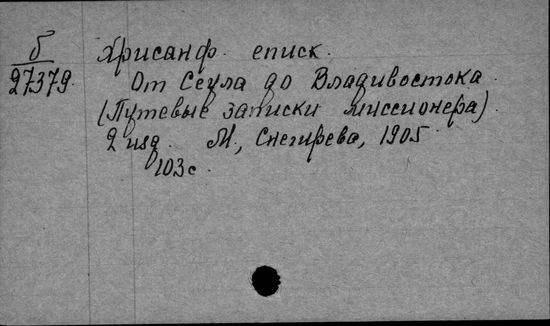 б
27379.
Хрисанф. еписк.
От Сеула до Владивостока.
(Путевые записки миссионера)
2 изд. М., Снегирева, 1905.
103 с.